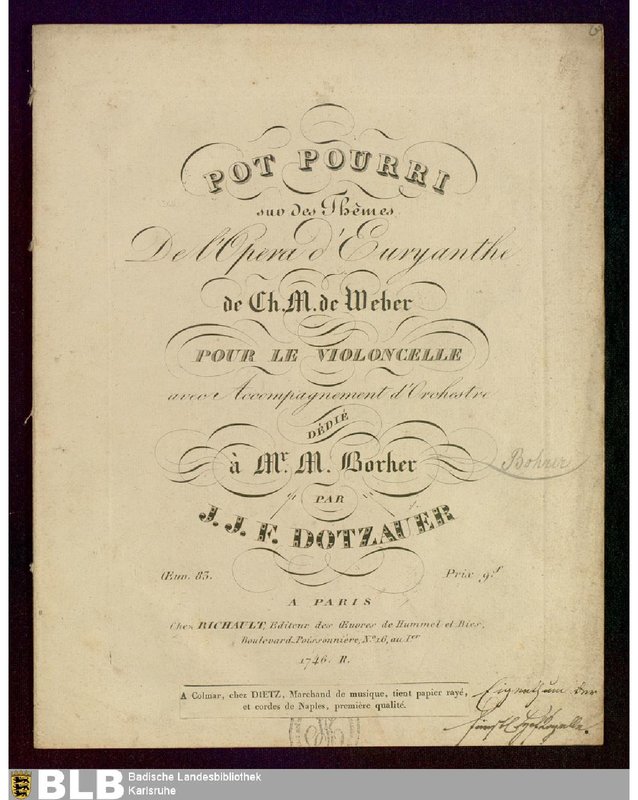 POT POURRI
sur des Thèmes
De l'Opera d'Euryanthe
de Ch. M. de Weber
POUR LE VIOLONCELLE
avec Accompagnement d'Orchestre
DÉDIÉ
à Mr. M. Borher
Bohrer
PAR
J. J. F. DOTZAUER
Œuv. 83. Prix 9f
A PARIS
Chez RICHAULT, Editeur des Œuvres de Hummel et Ries,
Boulevard Poissonnière, No. 16, au 1er
1746. R.
A Colmar, chez DIETZ, Marchand de musique, tient papier rayé,
et cordes de Naples, première qualité.
Eigenthum der
BLB Badische Landesbibliothek
Karlsruhe